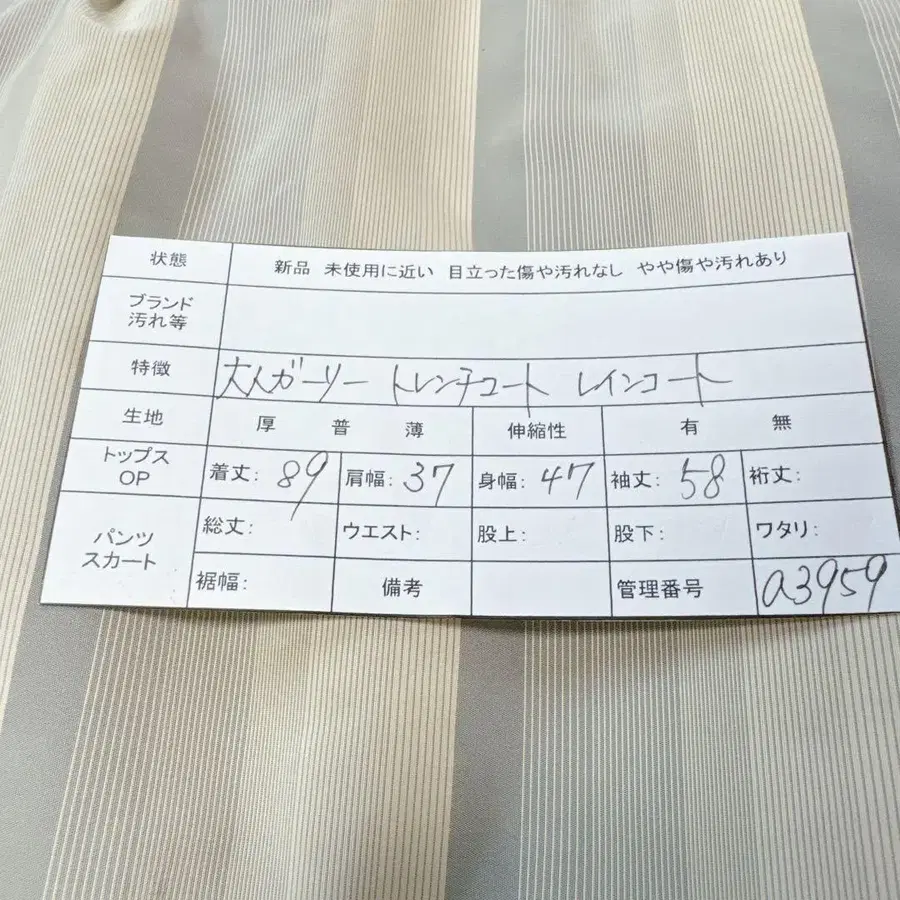 状態 新品 未使用に近い 目立った傷や汚れなし やや傷や汚れあり
ブランド
汚れ等
特徴 大人ガーリー トレンチコート レインコート
生地 厚 普 薄 伸縮性 有 無
トップス
OP
着丈: 89 肩幅: 37 身幅: 47 袖丈: 58 裄丈:
パンツ
スカート
総丈: ウエスト: 股上: 股下: ワタリ:
裾幅: 備考 管理番号 a3959